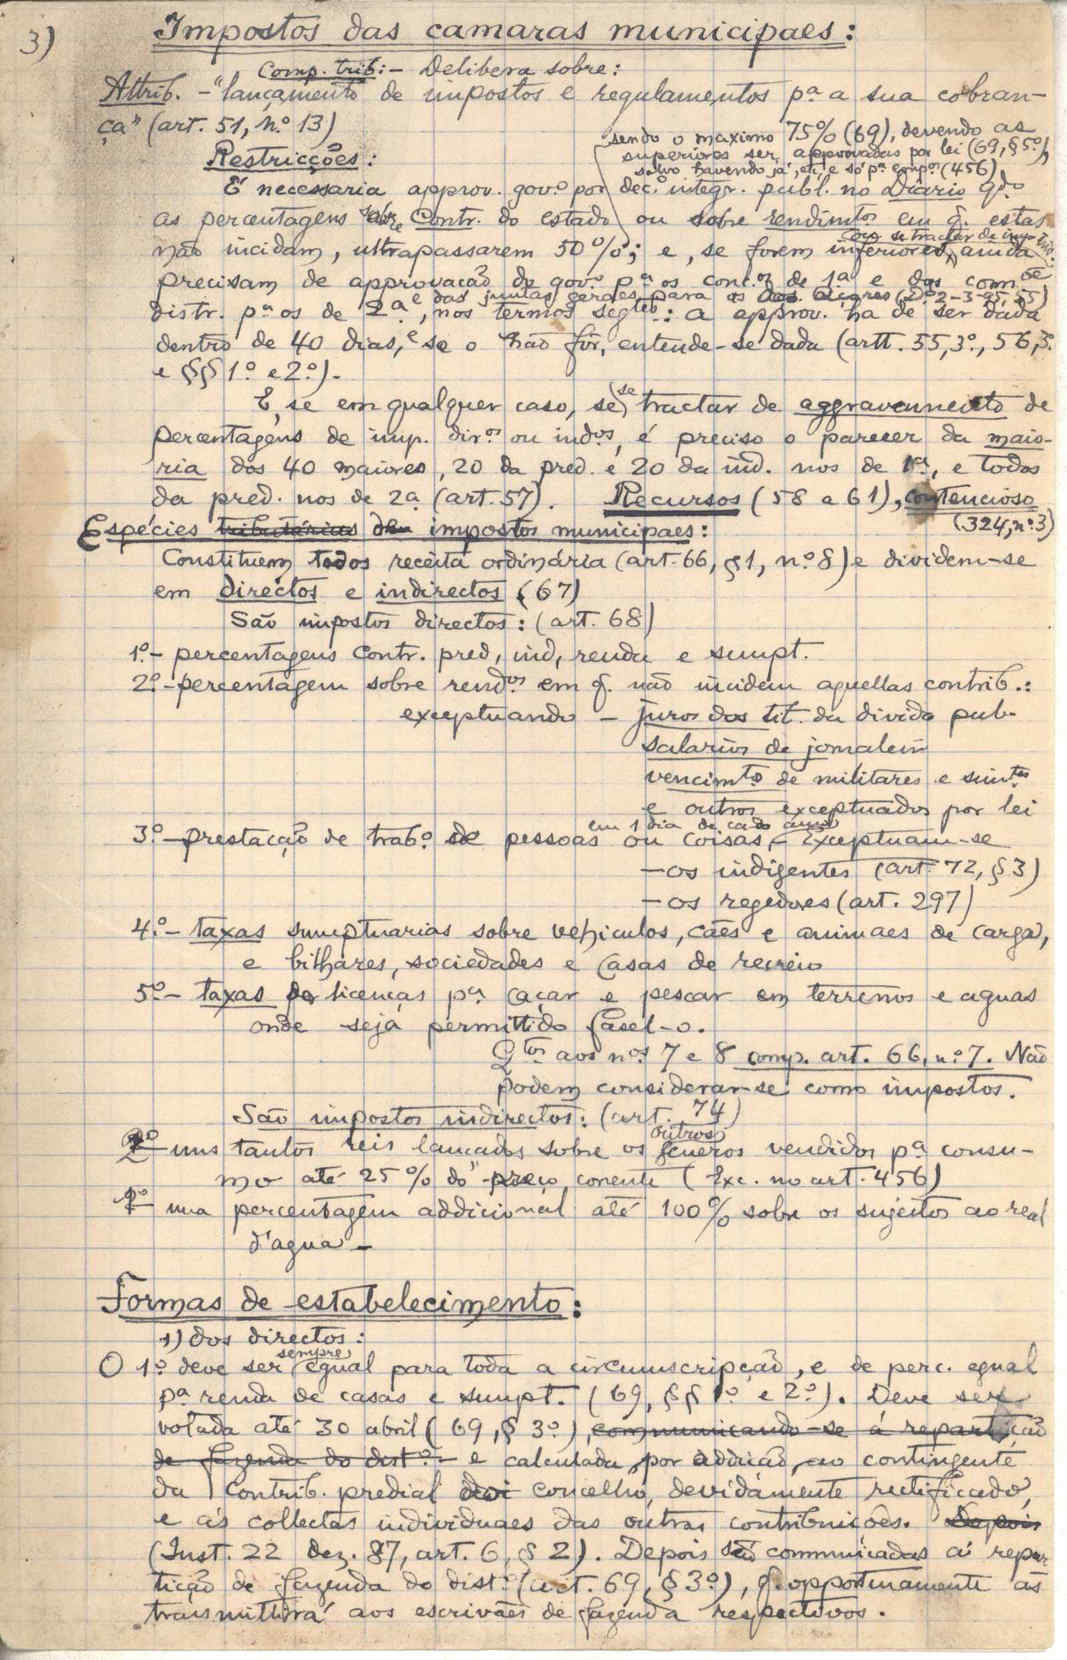 3)
Impostos das camaras municipaes:
Comp. trib:- Delibera sobre:
Attrib. - "lançamento de impostos e regulamentos pª a sua cobran-
ça" (art. 51, n.º 13)
sendo o maximo 75% (69), devendo as
superiores ser approvadas por lei (69, § 5º),
salvo, havendo já, etc, e só pª comp.ºs (456)
Restricções:
É necessaria approv. gov.º por dec. integr. publ. no Diario qdº
as percentagens sobre contr. do estado ou sobre rendimtos em q. estas
não incidam, ultrapassarem 50%; e, se forem inferiores, ainda
precisam de approvação do gov.º pª os conc.os de 1ª e das com
distr. pª os de 2ª, nos termos segtes: a approv. ha de ser dada
e das juntas geraes para os dos Açores (Dº 2-3-95,
dentro de 40 dias, e se o não fôr, entende-se dada (artt. 55, 3º, 56, 3.
e §§ 1º e 2º).
E, se em qualquer caso, se tractar de aggravamento de
percentagens de imp. dir.os ou ind.os, é preciso o parecer da maio-
ria dos 40 maiores, 20 da pred. e 20 da ind. nos de 1ª, e todos
da pred. nos de 2ª (art. 57). Recursos (58 a 61), contencioso
(324, nº 3)
Espécies tributárias de impostos municipaes:
Constituem todos receita ordinária (art. 66, § 1, n.º 8) e dividem-se
em directos e indirectos (67)
São impostos directos: (art. 68)
1º- percentagens contr. pred, ind, renda e sumpt.
2º- percentagem sobre rend.os em q. não incidem aquellas contrib.:
exceptuando - juros dos tit. da divida pub.
salarios de jornaleiro
vencimtos de militares e
e outros exceptuados por lei
em 1 dia de cada anno
3º- prestacção de trab.º de pessoas ou coisas. Exceptuam-se
- os indigentes (art. 72, § 3)
- os regedores (art. 297)
4º- taxas sumptuarias sobre vehiculos, cães e animaes de carga,
e bilhares, sociedades e casas de recreio
5º- taxas por licenças pª caçar e pescar em terrenos e aguas
onde seja permittido fasel-o.
Qtos aos nos 7 e 8 comp. art. 66, nº 7. Não
podem considerar-se como impostos.
São impostos indirectos: (art. 74)
2º uns tantos reis lançados sobre os outros generos vendidos pª consu-
mo até 25% do preço corrente (Exc. no art. 456)
1º uma percentagem addicional até 100% sobre os sujeitos ao real
d'agua -
Formas de estabelecimento:
1) dos directos:
O 1º deve ser sempre egual para toda a circumscripção, e de perc. egual
pª renda de casas e sumpt. (69, §§ 1º e 2º). Deve ser
votada até 30 abril (69, § 3º) communicando-se á repartição
de fazenda do dist.º - e calculada por addição ao contingente
da contrib. predial do concelho, devidamente rectificado,
e ás collectas individuaes das outras contribuições. Depois
(Inst. 22 dez. 87, art. 6, § 2). Depois são communicadas á repar
tição de fazenda do dist.º (art. 69, § 3º), q. opportunamente as
transmittirá aos escrivães de fazenda respectivos.